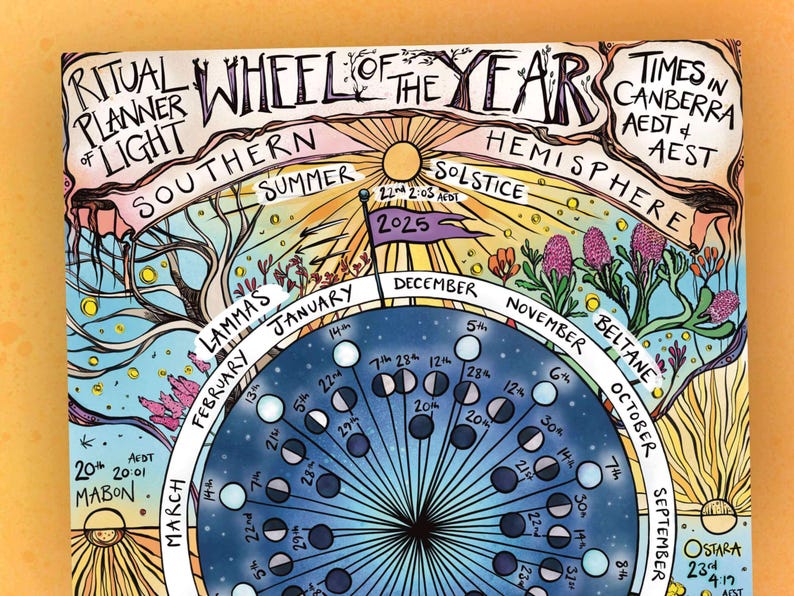 RITUAL
PLANNER
of LIGHT
WHEEL OF THE YEAR
TIMES IN
CANBERRA
AEDT &
AEST
SOUTHERN HEMISPHERE
SUMMER SOLSTICE
22nd 2:03 AEDT
2025
LAMMAS
BELTANE
MARCH
FEBRUARY
JANUARY
DECEMBER
NOVEMBER
OCTOBER
SEPTEMBER
14th
5th
7th
28th
12th
28th
12th
6th
13th
5th
22nd
20th
20th
30th
21st
29th
21st
14th
7th
14th
7th
28th
30th
22nd
29th
22nd
14th
5th
23rd
31st
8th
20th AEDT
20:01
MABON
OSTARA
23rd
4:19
AEST